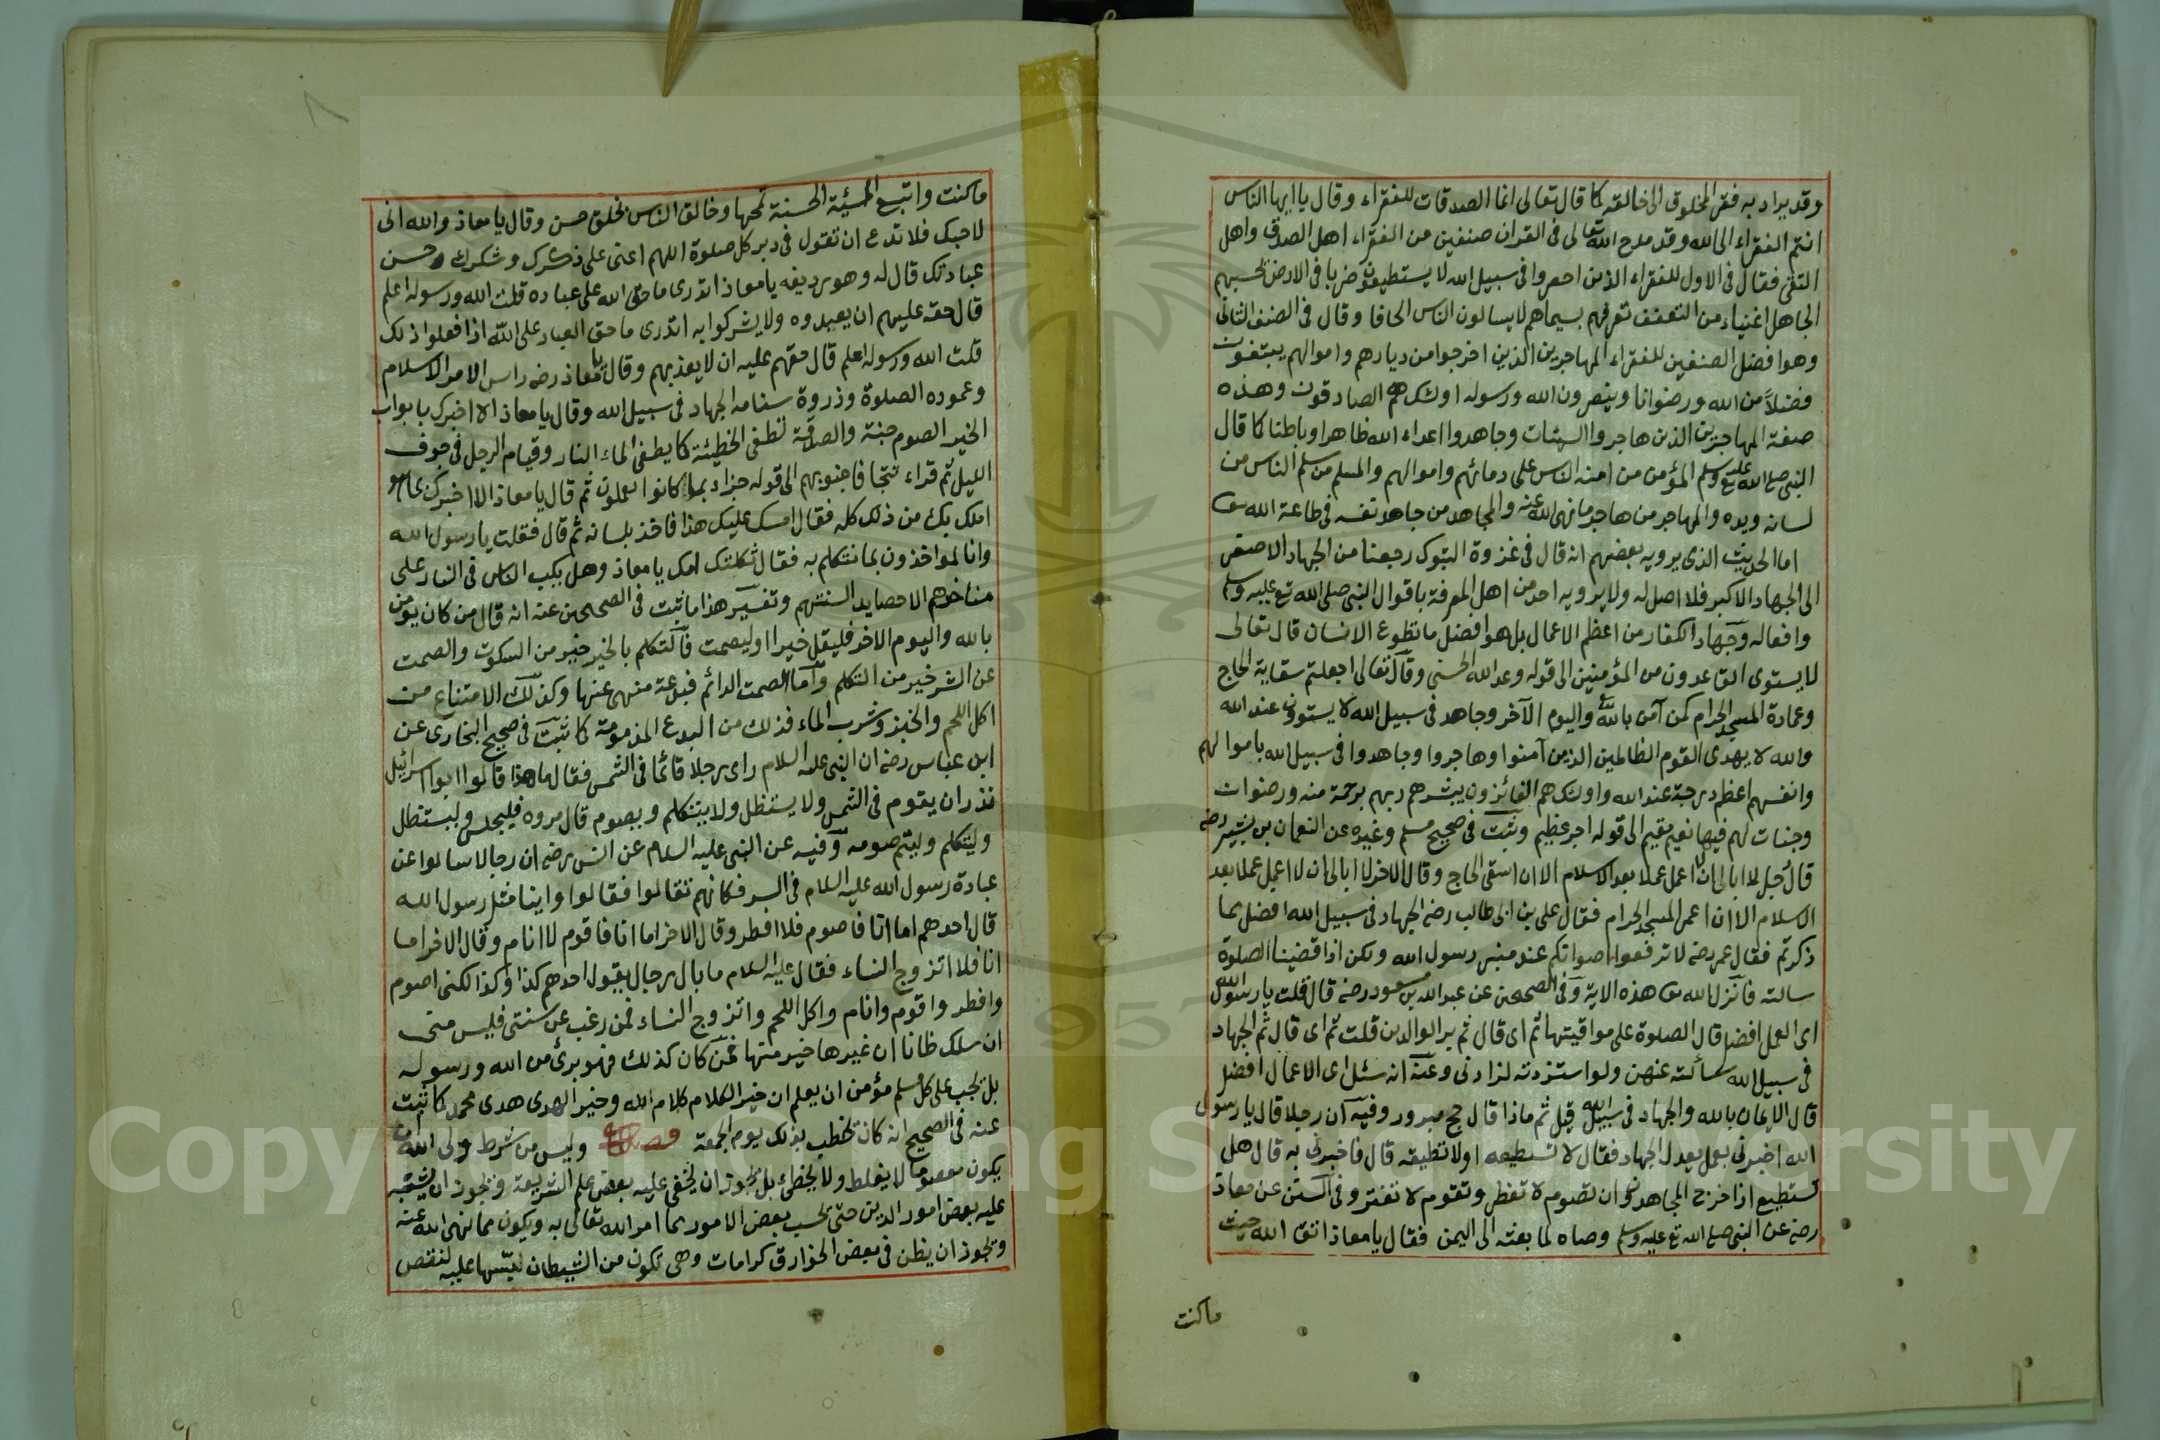 وقد يراد به فقر المخلوق الى خالقه كما قال تعالى انما الصدقات للفقراء وقال يا ايها الناس
انتم الفقراء الى الله وقد مدح الله تعالى فى القران صنفين من الفقراء اهل الصدق واهل
التقى فقال فى الاول للفقراء الذين احصروا فى سبيل الله لا يستطيعون ضربا فى الارض يحسبهم
الجاهل اغنياء من التعفف تعرفهم بسيماهم لا يسالون الناس الحافا وقال فى الصنف الثانى
وهو افضل الصنفين للفقراء المهاجرين الذين اخرجوا من ديارهم واموالهم يبتغون
فضلا من الله ورضوانا وينصرون الله ورسوله اولئك هم الصادقون وهذه
صفة المهاجرين الذين هاجروا السيئات وجاهدوا اعداء الله ظاهرا وباطنا كما قال
النبى صلى الله عليه وسلم المؤمن من امنه الناس على دمائهم واموالهم والمسلم من سلم الناس من
لسانه ويده والمهاجر من هاجر ما نهى الله عنه والمجاهد من جاهد نفسه فى طاعة الله
اما الحديث الذى يرويه بعضهم انه قال فى غزوة التبوك رجعنا من الجهاد الاصغر
الى الجهاد الاكبر فلا اصل له ولا يرويه احد من اهل المعرفة باقوال النبى صلى الله تع عليه وسلم
وافعاله وجهاد الكفار من اعظم الاعمال بل هو افضل ما تطوع الانسان قال تعالى
لا يستوى القاعدون من المؤمنين الى قوله وعد الله الحسنى وقال تعالى اجعلتم سقاية الحاج
وعمارة المسجد الحرام كمن آمن بالله واليوم الآخر وجاهد فى سبيل الله لا يستوون عند الله
والله لا يهدى القوم الظالمين الذين آمنوا وهاجروا وجاهدوا فى سبيل الله باموالهم
وانفسهم اعظم درجة عند الله واولئك هم الفائزون يبشرهم ربهم برحمة منه ورضوان
وجنات لهم فيها نعيم مقيم الى قوله اجر عظيم وثبت فى صحيح مسلم وغيره عن النعمان بن بشير رضه
قال رجل لا ابالى ان لا اعمل عملا بعد الاسلام الا ان اسقى الحاج وقال الاخر لا ابالى ان لا اعمل عملا بعد
الاسلام الا ان اعمر المسجد الحرام فقال على بن ابى طالب رضه الجهاد فى سبيل الله افضل مما
ذكرتم فقال عمر رضه لا ترفعوا اصواتكم عند منبر رسول الله ولكن اذا قضينا الصلوة
سالته فانزل الله هذه الاية وفى الصحيحين عن عبد الله بن مسعود رضه قال قلت يا رسول الله
اى العمل افضل قال الصلوة على مواقيتها ثم اى قال ثم بر الوالدين قلت ثم اى قال ثم الجهاد
فى سبيل الله سألته عنهن ولو استزدته لزادنى وعنه انه سئل اى الاعمال افضل
قال الايمان بالله والجهاد فى سبيل الله قيل ثم ماذا قال حج مبرور وفيه ان رجلا قال يا رسول
الله اخبرنى بعمل يعدل الجهاد فقال لا تستطيعه او لا تطيقه قال فاخبرنى به قال هل
تستطيع اذا خرج المجاهد ان تصوم لا تفطر وتقوم لا تفتر وفى السنن عن معاذ
رضه عن النبى صلى الله تع عليه وسلم وصاه لما بعثه الى اليمن فقال يا معاذ اتق الله حيث
ما كنت
ما كنت واتبع السيئة الحسنة تمحها وخالق الناس بخلق حسن وقال يا معاذ والله انى
لاحبك فلا تدع ان تقول فى دبر كل صلوة اللهم اعنى على ذكرك وشكرك وحسن
عبادتك قال له وهو رديفه يا معاذ اتدرى ما حق الله على عباده قلت الله ورسوله اعلم
قال حقه عليهم ان يعبدوه ولا يشركوا به اتدرى ما حق العباد على الله اذا فعلوا ذلك
قلت الله ورسوله اعلم قال حقهم عليه ان لا يعذبهم وقال يا معاذ رضه راس الامر الاسلام
وعموده الصلوة وذروة سنامه الجهاد فى سبيل الله وقال يا معاذ الا اخبرك بابواب
الخير الصوم جنة والصدقة تطفى الخطيئة كما يطفى الماء النار وقيام الرجل فى جوف
الليل ثم قراء تتجافا جنوبهم الى قوله جزاء بما كانوا يعملون ثم قال يا معاذ الا اخبرك بما هو
املك بك من ذلك كله فقال امسك عليك هذا فاخذ بلسانه ثم قال فقلت يا رسول الله
وانا لمواخذون بما نتكلم به فقال ثكلتك امك يا معاذ وهل يكب الناس فى النار على
مناخرهم الا حصايد السنتهم وتفسير هذا ما ثبت فى الصحيحين عنه انه قال من كان يؤمن
بالله واليوم الاخر فليقل خيرا او ليصمت فالتكلم بالخير خير من السكوت والصمت
عن الشر خير من التكلم واما الصمت الدائم فبدعة منهى عنها وكذلك الامتناع من
اكل اللحم والخبز وشرب الماء فذلك من البدع المذمومة كما ثبت فى صحيح البخارى عن
ابن عباس رضه ان النبى عليه السلام راى رجلا قائما فى الشمس فقال ما هذا قالوا ابو اسرائيل
نذر ان يقوم فى الشمس ولا يستظل ولا يتكلم ويصوم قال مروه فليجلس وليستظل
وليتكلم وليتم صومه وفيه عن النبى عليه السلام عن انس رضه ان رجالا سالوا عن
عبادة رسول الله عليه السلام فى السر فكانهم تقالوا فقالوا واينا مثل رسول الله
قال احدهم اما انا فاصوم فلا افطر وقال الاخر اما انا فاقوم لا انام وقال الاخر اما
انا فلا اتزوج النساء فقال عليه السلام ما بال رجال يقول احدهم كذا وكذا لكنى اصوم
وافطر واقوم وانام واكل اللحم واتزوج النساء فمن رغب عن سنتى فليس منى
ان سلك ظانا ان غيرها خير منها فمن كان كذلك فهو برئ من الله ورسوله
بل يجب على كل مسلم مؤمن ان يعلم ان خير الكلام كلام الله وخير الهدى هدى محمد كما ثبت
عنه فى الصحيح انه كان يخطب بذلك يوم الجمعة فصل وليس من شرط ولى الله ان
يكون معصوما لا يغلط ولا يخطئ بل يجوز ان يخفى عليه بعض علم الشريعة ويجوز ان يشتبه
عليه بعض امور الدين حتى يحسب بعض الامور مما امر الله تعالى به ويكون مما نهى الله عنه
ويجوز ان يظن فى بعض الخوارق كرامات وهى تكون من الشيطان لبسها عليه لنقص
Copyright © King Saud University
957